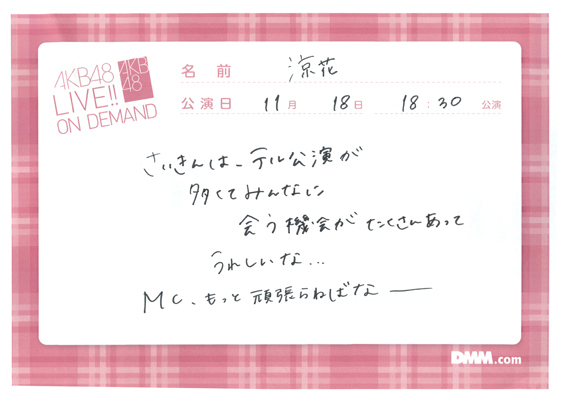 AKB48
LIVE!!
ON DEMAND
AKB
48
名前 涼花
公演日 11月 18日 18:30 公演
さいきんは、テル公演が
多くてみんなに
会う機会がたくさんあって
うれしいな...
MC、もっと頑張らねばなー
DMM.com